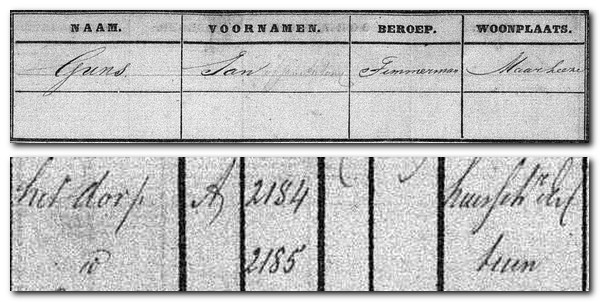 NAAM. VOORNAMEN. BEROEP. WOONPLAATS.
Guns Jan Timmerman Maarheeze
het dorp A 2184 huis
id 2185 tuin